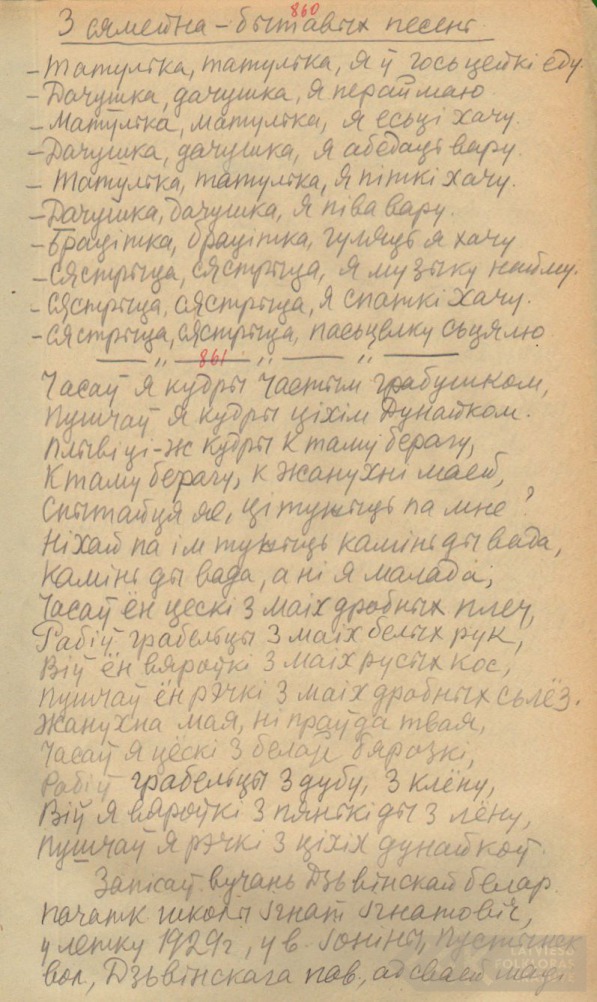 860
З сямейна-бытавых песень
- Татулька, татулька, я ў госьцейкі еду
- Дачушка, дачушка, я пераймаю
- Матулька, матулька, я есьці хачу.
- Дачушка, дачушка, я абедаць вару.
- Татулька, татулька, я піткі хачу.
- Дачушка, дачушка, я піва вару.
- Брацітка, брацітка, гуляць я хачу
- Сястрыца, сястрыца, я музыку найму.
- Сястрыца, сястрыца, я спаткі хачу.
- Сястрыца, сястрыца, пасьцелку сьцялю
861
Часаў я кудры частым грабушком,
Пушчаў я кудры ціхім Дунайком.
Плывіці-ж кудры к таму берагу,
К таму берагу, к жанухні маей,
Спытайця яе, ці тужыць па мне?
Ніхай па ім тужыць камінь ды вада,
Камінь ды вада, а ні я малада,
Часаў ён цескі з маіх дробных плеч,
Рабіў грабельцы з маіх белых рук,
Віў ён вяроўкі з маіх русых кос,
Пушчаў ён рэчкі з маіх дробных сьлёз.
Жанухна мая, ні праўда твая,
Часаў я цёскі з белай бярозкі,
Рабіў грабельцы з дубу, з клёну,
Віў я вяроўкі з пянькі ды з лёну,
Пушчаў я рэчкі з ціхіх дунайкоў.
Запісаў вучань Дзьвінскай белар.
пачатк школы Ігнат Ігнатовіч,
у летку 1929г, у в. Іоніны, Пустынск
вол, Дзьвінскага пав, ад сваей маці
LATVIEŠU
FOLKLORAS
KRĀTUVE